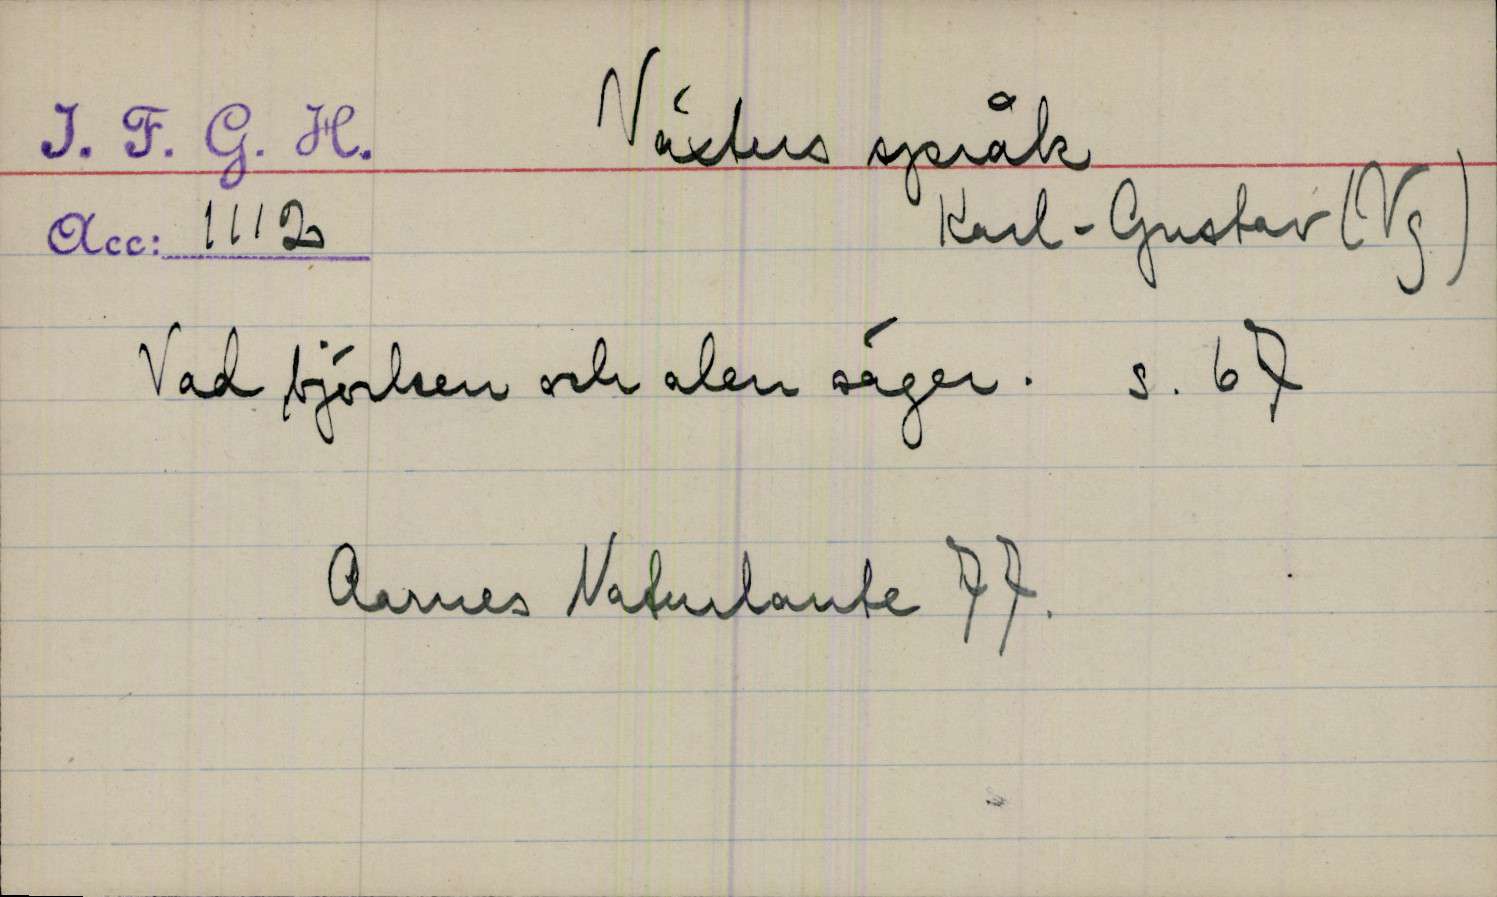 I. F. G. H.
Växters språk
Acc: 1112
Karl-Gustav (Vg)
Vad björken och alen säger. s. 67
Aarnes Naturlaute 77.